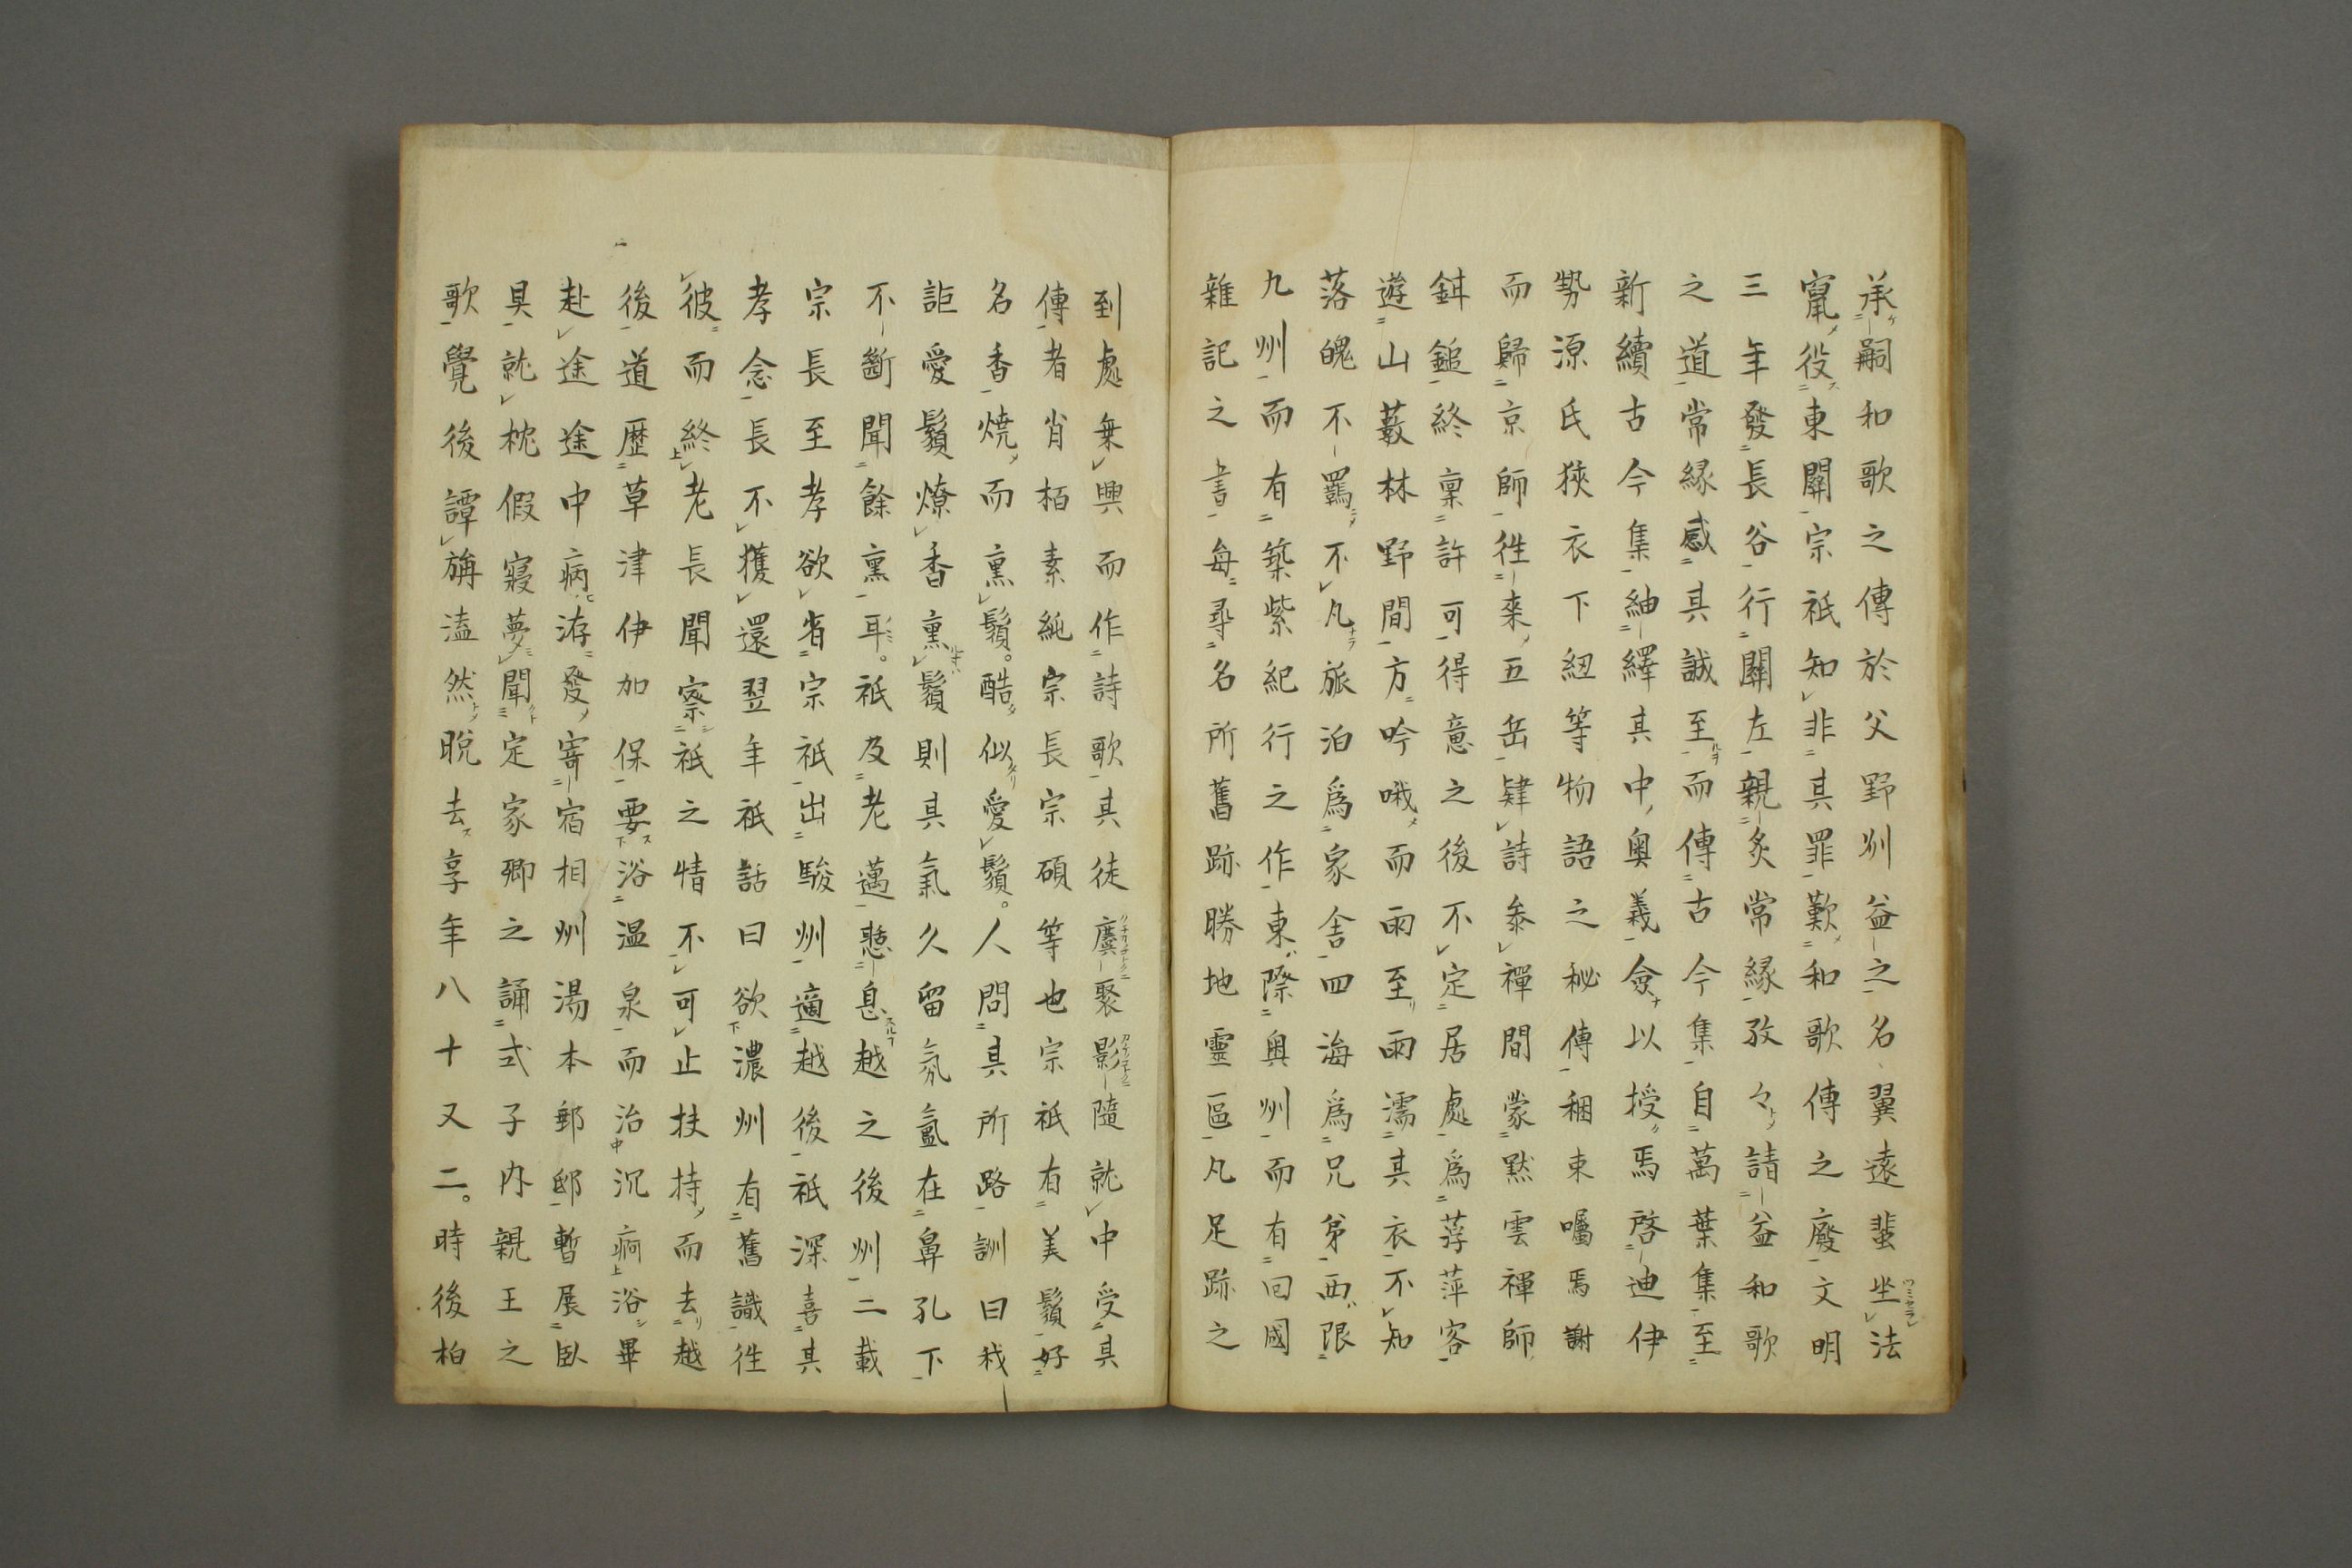 承嗣和歌之傳於父野州益之名翼遠蜚坐法
竄役東關宗祇知非其罪歎和歌傳之廢文明
三年發長谷行關左親炙常縁孜々請益和歌
之道常縁感其誠至而傳古今集自萬葉集至
新續古今集紬繹其中奥義僉以授焉啓迪伊
勢源氏狹衣下紐等物語之秘傳稇束囑焉謝
而歸京師徃来五岳肄詩叅禪間蒙黙雲禪師
鉗鎚終稟許可得意之後不定居處爲萍客
遊山藪林野間方吟哦而雨至雨濡其衣不知
落魄不羈不凡旅泊爲家舎四海爲兄弟西限
九州而有築紫紀行之作東際奥州而有回國
雜記之書毎尋名所舊跡勝地靈區凡足跡之
到處無興而作詩歌其徒麕聚影隨就中受其
傳者肖柏素純宗長宗碩等也宗祇有美鬚好
名香焼而熏鬚酷似愛鬚人問其所路訓曰我
詎愛鬚燎香熏鬚則其氣久留氛氳在鼻孔下
不斷聞餘熏耳祇及老邁憩息越之後州二載
宗長至孝欲省宗祇出駿州適越後祇深喜其
孝念長不獲還翌年祇話曰欲濃州有舊識徃
彼而終老長聞察祇之情不可止扶持而去越
後道歴草津伊加保要浴温泉而治沉痾浴畢
赴途途中病洊發寄宿相州湯本郵邸暫展臥
具就枕假寢夢聞定家卿之誦式子内親王之
歌覺後譚旃溘然脱去享年八十又二時後柏